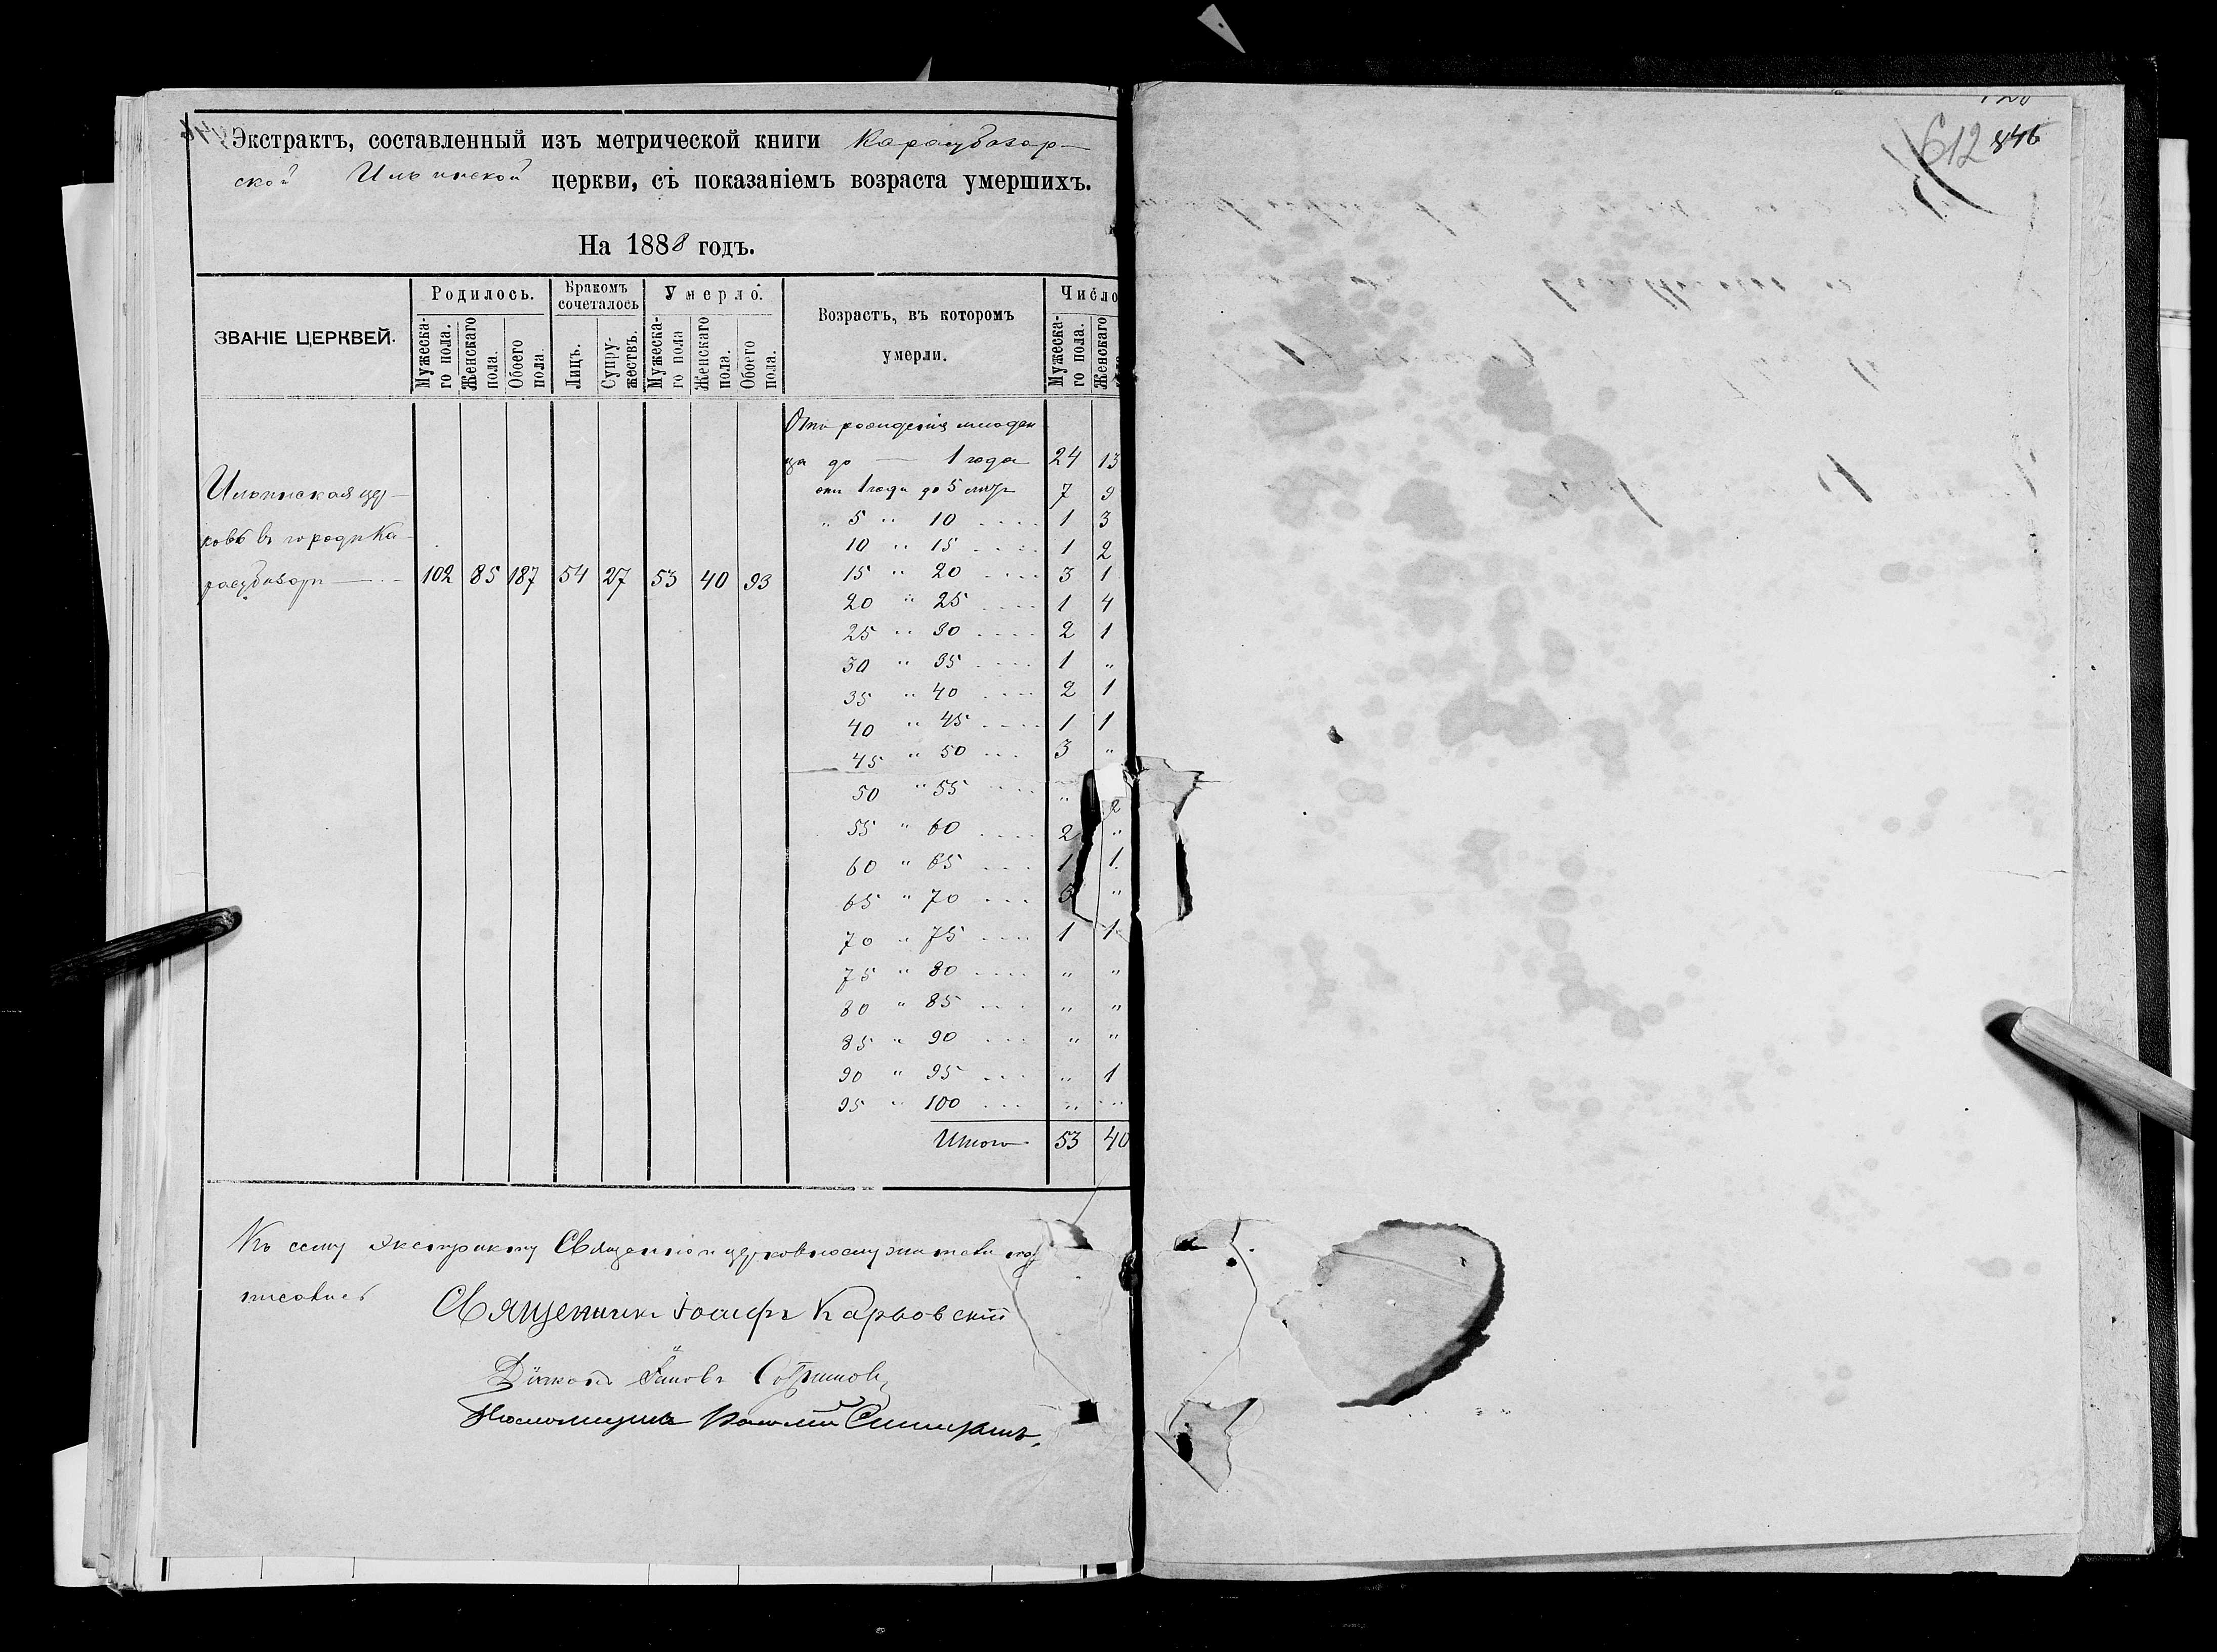 Экстрактъ, составленный изъ метрической книги Карасубазар-
ской Ильинской церкви, съ показаніемъ возраста умершихъ.
На 1888 годъ.
ЗВАНІЕ ЦЕРКВЕЙ.
Родилось.
Бракомъ сочеталось
Умерло.
Возрастъ, въ которомъ умерли.
Число
Мужеска-го пола.
Женскаго пола.
Обоего пола.
Лицъ.
Супру-жествъ.
Мужеска-го пола
Женскаго пола.
Обоего пола.
Мужеска-го пола.
Женскаго
Ильинская цер-
ковь въ городѣ Ка-
расубазарѣ 102 85 187 54 27 53 40 93
Отъ рожденія младен
ца до — 1 года 24 13
отъ 1 года до 5 лѣтъ 7 9
" 5 " 10 .... 1 3
10 " 15 .... 1 2
15 " 20 .... 3 1
20 " 25 .... 1 4
25 " 30 .... 2 1
30 " 35 .... 1 "
35 " 40 .... 2 1
40 " 45 .... 1 1
45 " 50 ... 3 "
50 " 55 .... " 2
55 " 60 .... 2 "
60 " 65 ... 1 1
65 " 70 ... 3 "
70 " 75 .... 1 1
75 " 80 .... " "
80 " 85 ... " "
85 " 90 ... " "
90 " 95 ... " 1
95 " 100 ... " "
Итого 53 40
Къ сему экстракту Священно и церковнослужители под
писались
Священникъ Іосифъ Карповскій
Діаконъ Іаковъ
612 846